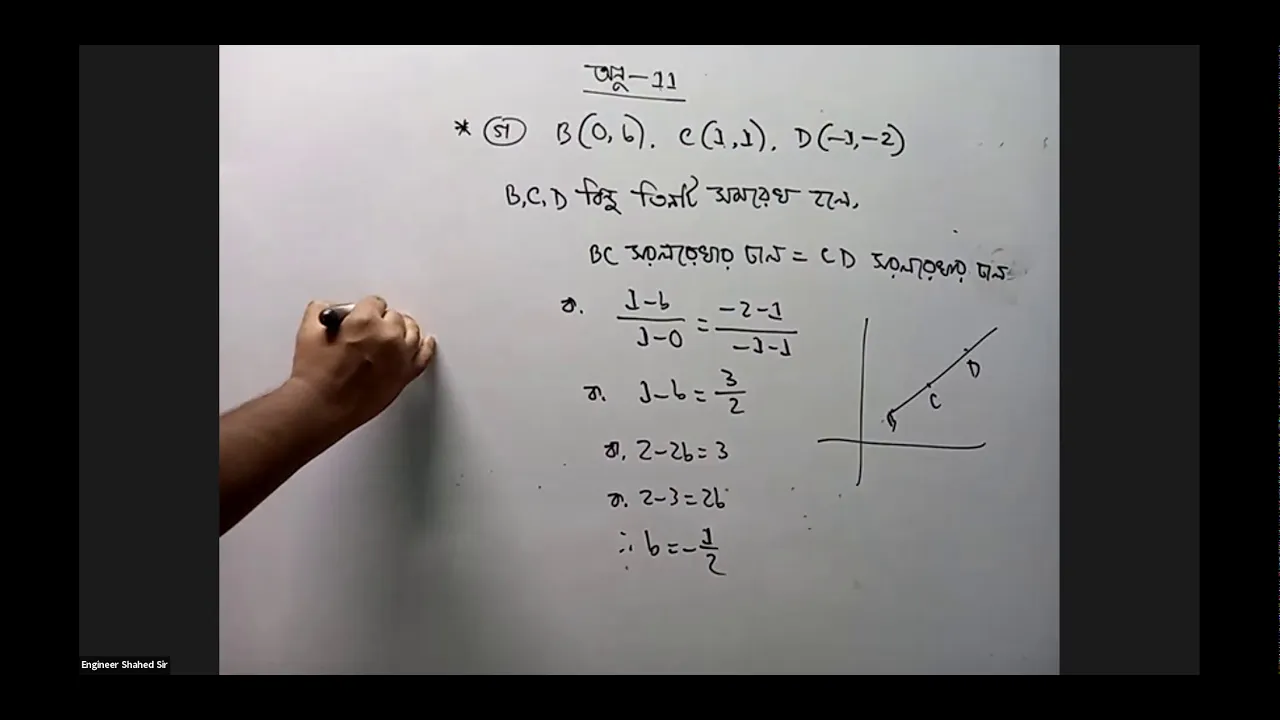 অনু-11
* গ B(0, b). C(1, 1). D(-1, -2)
B, C, D বিন্দু তিনটি সমরেখ হলে,
BC সরলরেখার ঢাল = CD সরলরেখার ঢাল
বা, (1-b)/(1-0) = (-2-1)/(-1-1)
বা, 1-b = 3/2
বা, 2-2b = 3
বা, 2-3 = 2b
∴ b = -1/2
D
C
B
Engineer Shahed Sir